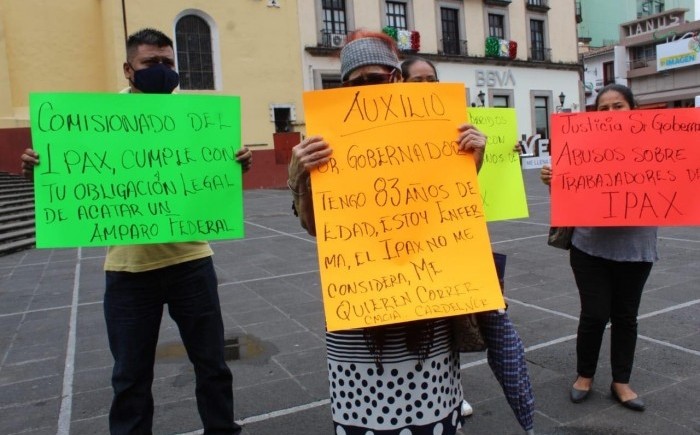 COMISIONADO DEL
IPAX, CUMPLE CON
TU OBLIGACIÓN LEGAL
DE ACATAR UN
AMPARO FEDERAL
AUXILIO
SR. GOBERNADOR
TENGO 83 AÑOS DE
EDAD, ESTOY ENFER
MA, EL IPAX NO ME
CONSIDERA, ME
QUIEREN CORRER
CMCIA CARDEL VER
JUSTICIA SR GOBERNA
ABUSOS SOBRE
TRABAJADORES DE
IPAX
BBVA
IMAGEN